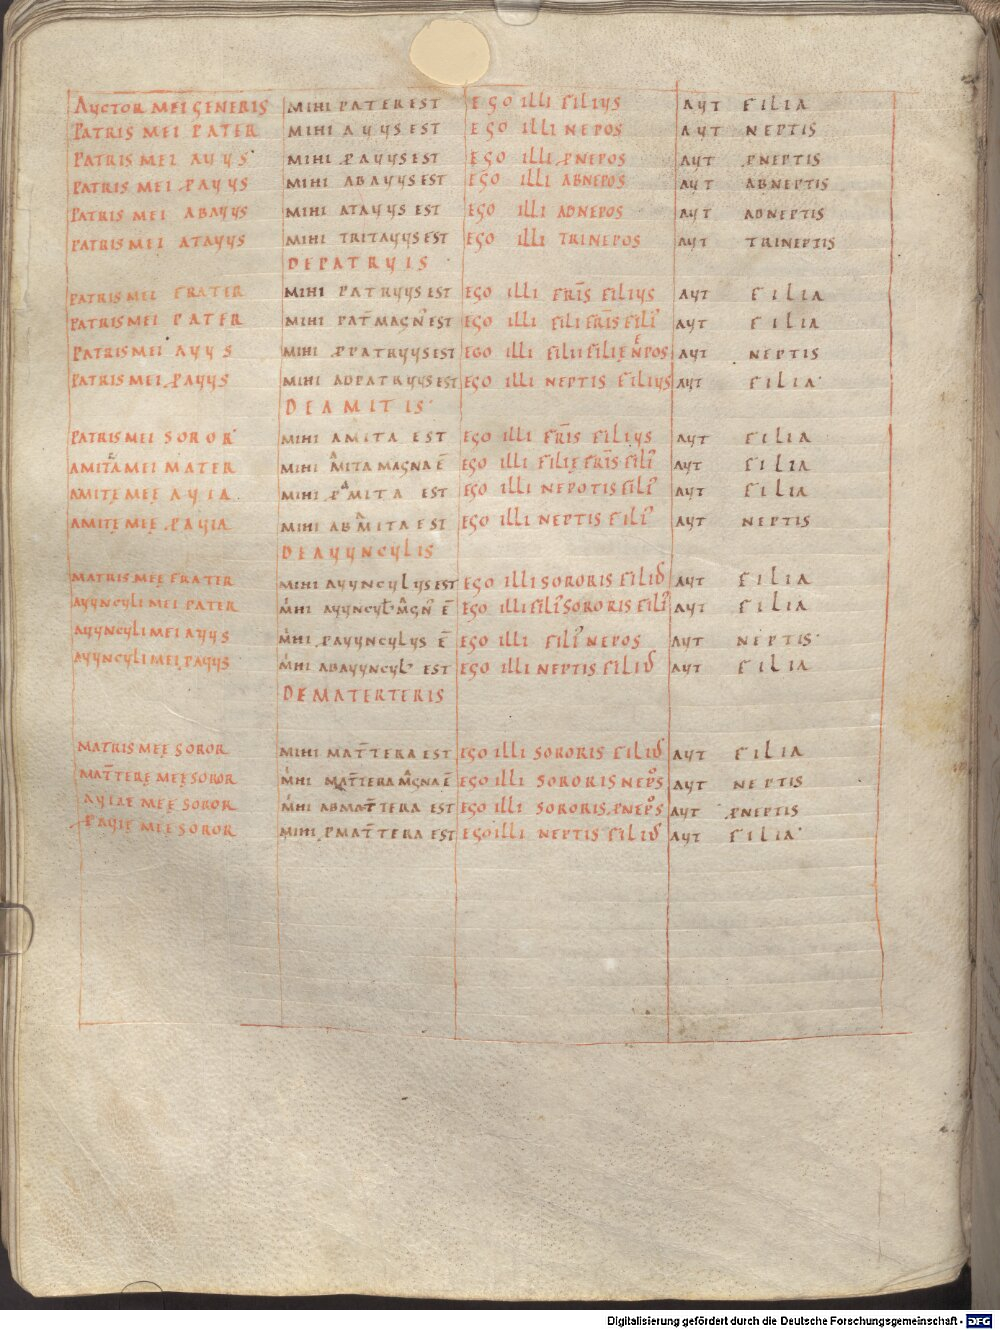 AUCTOR MEI GENERIS MIHI PATER EST EGO ILLI FILIUS AUT FILIA
PATRIS MEI PATER MIHI AUUS EST EGO ILLI NEPOS AUT NEPTIS
PATRIS MEI AUUS MIHI PAUUS EST EGO ILLI PNEPOS AUT PNEPTIS
PATRIS MEI PAUUS MIHI ABAUUS EST EGO ILLI ABNEPOS AUT ABNEPTIS
PATRIS MEI ABAUUS MIHI ATAUUS EST EGO ILLI ADNEPOS AUT ADNEPTIS
PATRIS MEI ATAUUS MIHI TRITAUUS EST EGO ILLI TRINEPOS AUT TRINEPTIS
DE PATRUIS
PATRIS MEI FRATER MIHI PATRUUS EST EGO ILLI FRIS FILIUS AUT FILIA
PATRIS MEI PATER MIHI PAT MAGN' EST EGO ILLI FILI FRIS FILI' AUT FILIA
PATRIS MEI AUUS MIHI PPATRUUS EST EGO ILLI FILII FILIE NEPOS AUT NEPTIS
PATRIS MEI PAUUS MIHI ADPATRUUS EST EGO ILLI NEPTIS FILIUS AUT FILIA
DE AMITIS
PATRIS MEI SOROR MIHI AMITA EST EGO ILLI FRIS FILIUS AUT FILIA
AMITA MEI MATER MIHI AMITA MAGNA Ē EGO ILLI FILIE FRIS FILI' AUT FILIA
AMITE MEE AUIA MIHI PAMITA EST EGO ILLI NEPOTIS FILI' AUT FILIA
AMITE MEE PAUIA MIHI ABAMITA EST EGO ILLI NEPTIS FILI' AUT NEPTIS
DE AUUNCULIS
MATRIS MEE FRATER MIHI AUUNCULUS EST EGO ILLI SORORIS FILIUS AUT FILIA
AUUNCULI MEI PATER MIHI AUUNCUL' MAGN' Ē EGO ILLI FILI' SORORIS FILI' AUT FILIA
AUUNCULI MEI AUUS MIHI PAUUNCULUS Ē EGO ILLI FILI' NEPOS AUT NEPTIS
AUUNCULI MEI PAUUS MIHI ABAUUNCUL' EST EGO ILLI NEPTIS FILIUS AUT FILIA
DE MATERTERIS
MATRIS MEE SOROR MIHI MATTERA EST EGO ILLI SORORIS FILIUS AUT FILIA
MATTERE MEE SOROR MIHI MATTERA MAGNA Ē EGO ILLI SORORIS NEPOS AUT NEPTIS
AUIAE MEE SOROR MIHI ABMATTERA EST EGO ILLI SORORIS PNEPOS AUT PNEPTIS
PAUIE MEE SOROR MIHI PMATTERA EST EGO ILLI NEPTIS FILIUS AUT FILIA
Digitalisierung gefördert durch die Deutsche Forschungsgemeinschaft - DFG